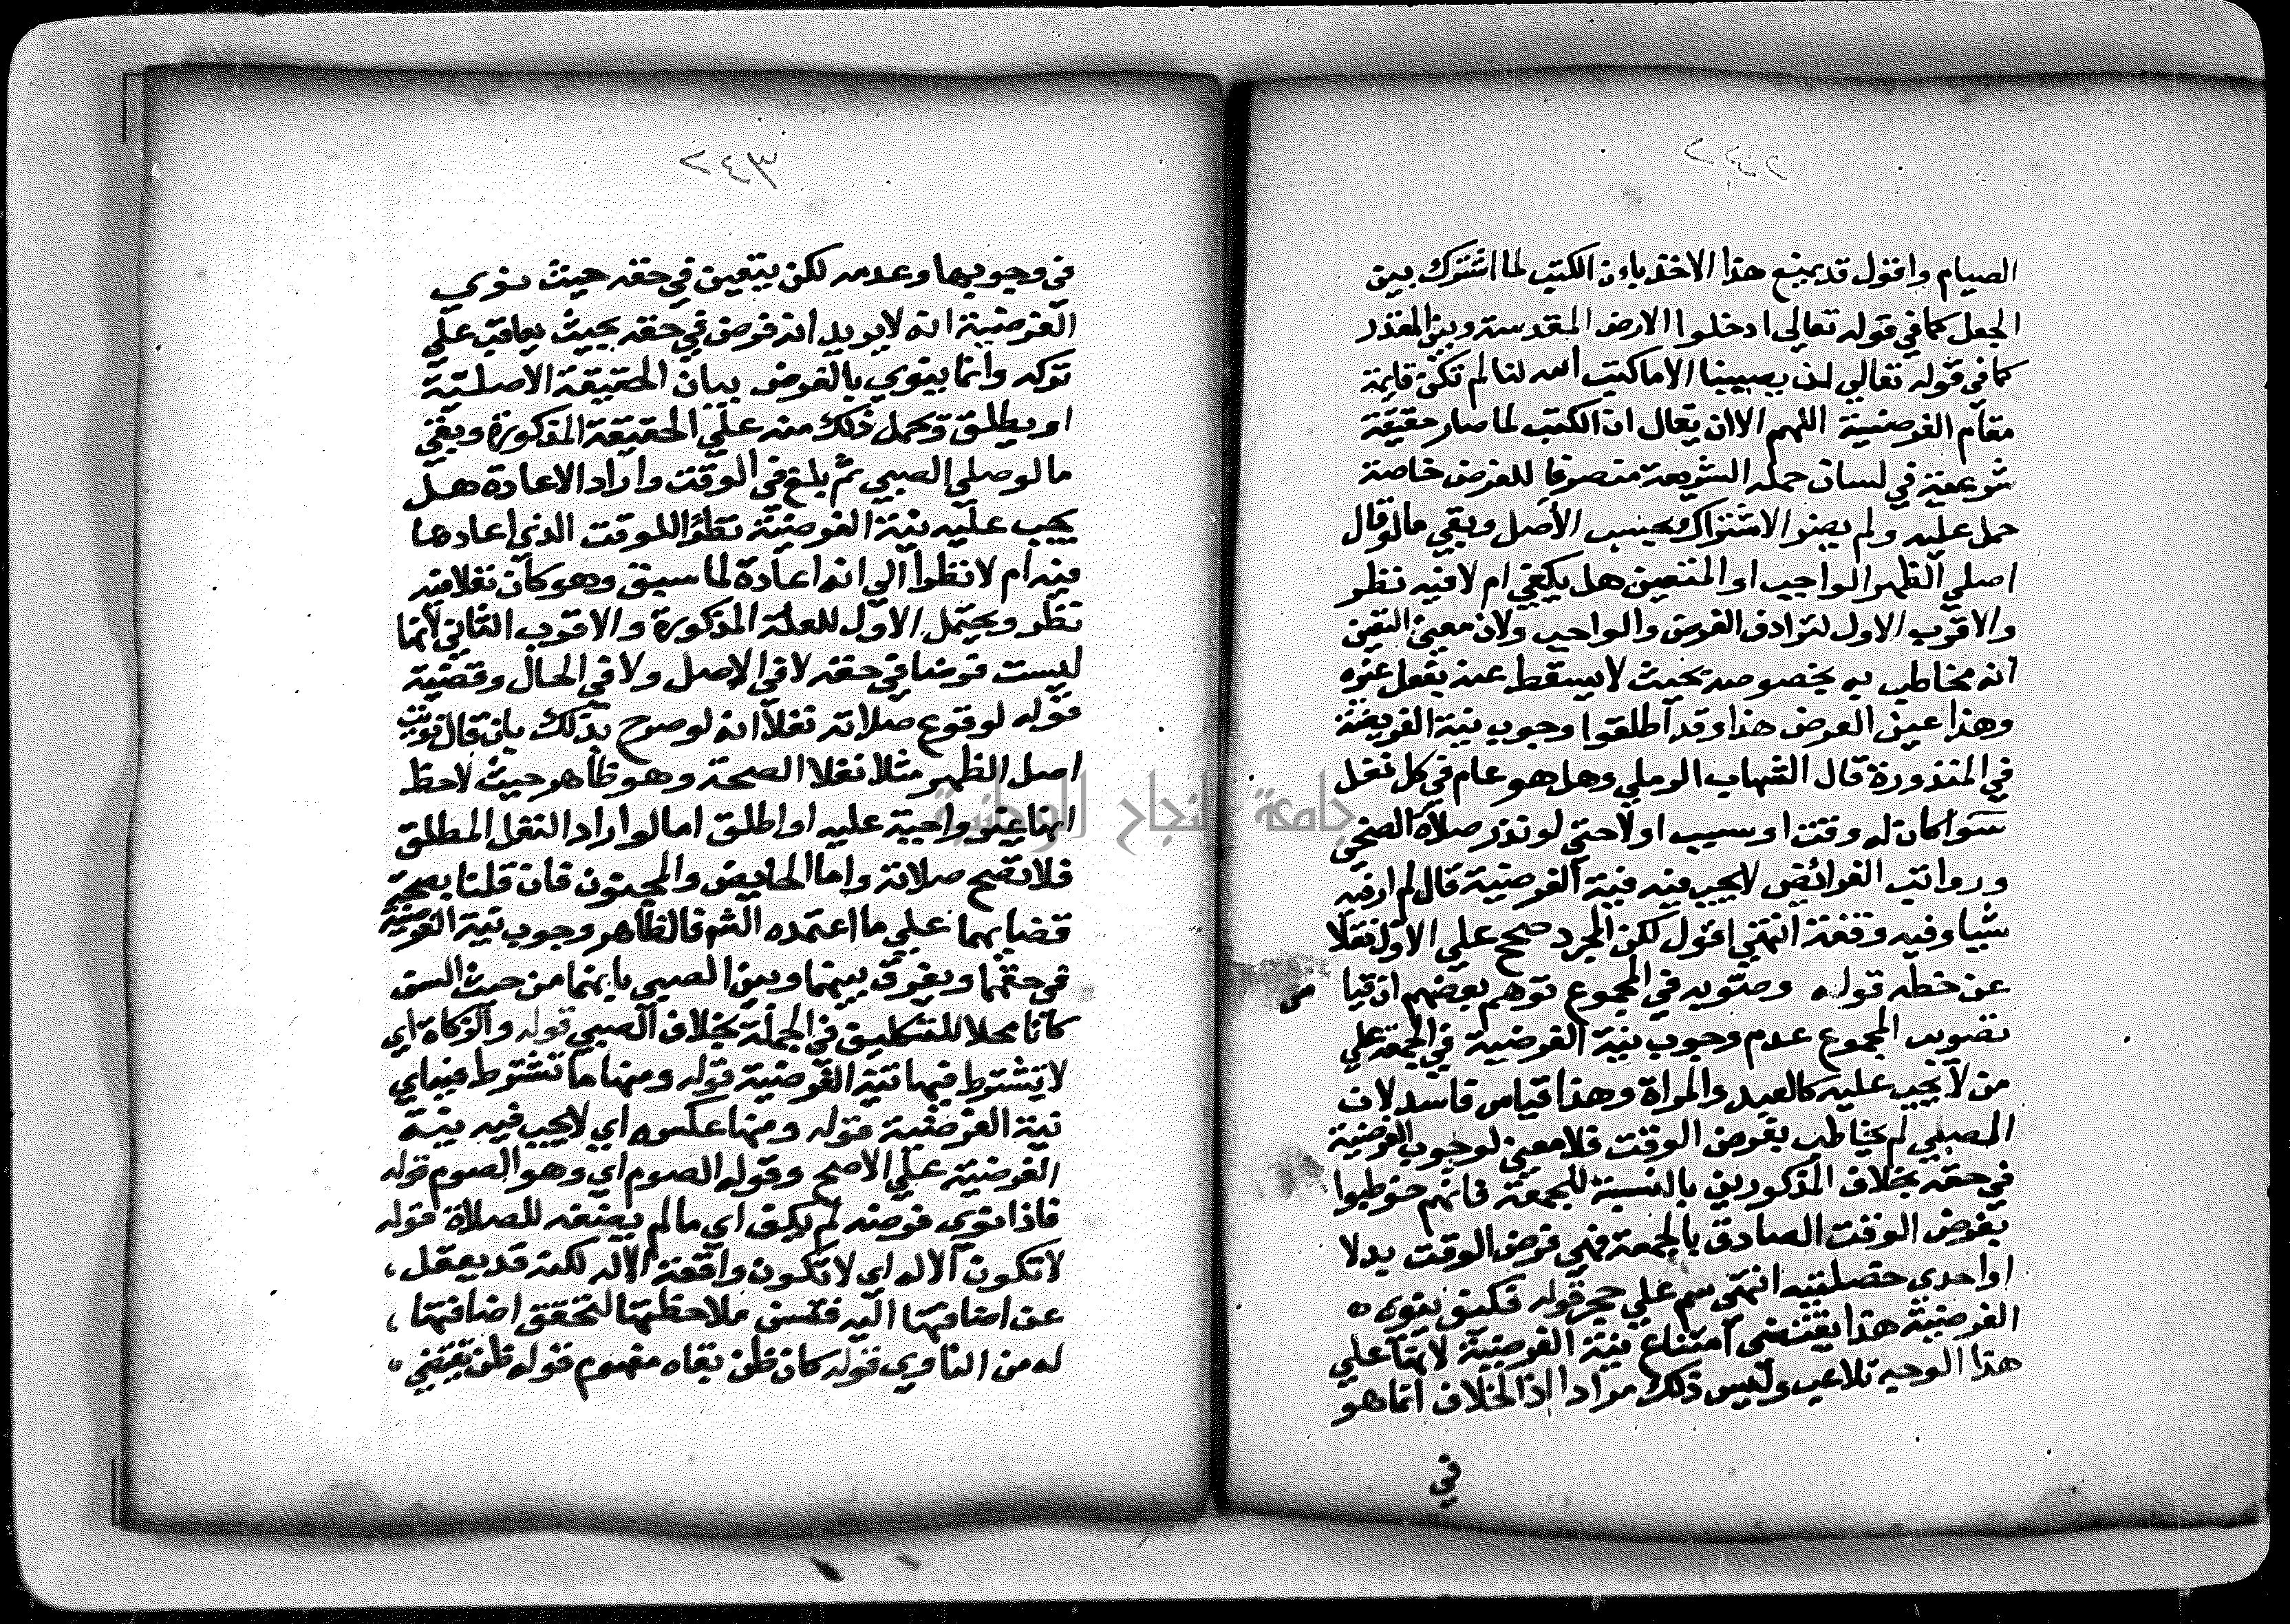 الصيام واقول قد يمنع هذا الاخذ بان الكتب لما اشترك بين
الجعل كما في قوله تعالى ادخلوا الارض المقدسة وبين المقدر
كما في قوله تعالى لن يصيبنا الا ما كتب الله لنا لم تكن قايمة
مقام الفرضية اللهم الا ان يقال ان الكتب لما صار حقيقة
شرعية في لسان حملة الشريعة منصرفا للفرض خاصة
حمل عليه ولم يضر الاشتراك بحسب الأصل وبقي ما لو قال
اصلي الظهر الواجب او المتعين هل يكفي ام لا فيه نظر
والاقرب الاول لترادف الفرض والواجب ولان معنى التعين
انه مخاطب به بخصوصه بحيث لا يسقط عنه بفعل غيره
وهذا عين الفرض هذا وقد أطلقوا وجوب نية الفريضة
في المنذورة قال الشهاب الرملي وهل هو عام في كل نفل
سوا كان له وقت او سبب او لا حتى لو نذر صلاة الضحى
ورواتب الفرائض لا يجب فيه نية الفرضية قال لم ار فيه
شيا وفيه وقفة انتهى اقول لكن المجرد صحح على الاول نقلا
عن خطه قوله وصوبه في المجموع توهم بعضهم ان قيا س
تصويب المجموع عدم وجوب نية الفرضية في الجمعة على
من لا يجب عليه كالعبد والمراة وهذا قياس فاسد لان
الصبي لم يخاطب بفرض الوقت فلا معنى لوجوب الفرضية
في حقه بخلاف المذكورين بالنسبة للجمعة فانهم خوطبوا
بفرض الوقت الصادق بالجمعة فهي فرض الوقت بدلا
او احدى خصلتيه انتهى سم على حجر قوله فكيف ينوي
الفرضية هذا يقتضى امتناع نية الفرضية لانها على
هذا الوجيه تلاعب وليس ذلك مرادا اذ الخلاف انما هو
في
٢٤٣
في وجوبها وعدمه لكن يتعين في حقه حيث نوى
الفرضية انه لا يريد انه فرض في حقه بحيث يعاقب على
تركه وانما ينوي بالفرض بيان الحقيقة الاصلية
او يطلق ويحمل ذلك منه على الحقيقة المذكورة وبقي
ما لو صلى الصبي ثم بلغ في الوقت واراد الاعادة هل
يجب عليه نية الفرضية نظرا للوقت الذي اعادها
فيه ام لا نظرا الى انه اعادة لما سبق وهو كان نفلا فيه
نظر ويحتمل الاول للعلة المذكورة والاقرب الثاني لانها
ليست فرضا في حقه لا في الاصل ولا في الحال وقضية
قوله لوقوع صلاته نفلا انه لو صرح بذلك بان قال نويت
اصلي الظهر مثلا نفلا الصحة وهو ظاهر حيث لاحظ
انها غير واجبة عليه او اطلق اما لو اراد النفل المطلق
فلا تصح صلاته واما الحايض والمجنون فان قلنا بصحة
قضايهما على ما اعتمده الشم فالظاهر وجوب نية الفرضية
في حقهما ويفرق بينهما وبين الصبي بانهما من حيث السن
كانا محلا للتكليف في الجملة بخلاف الصبي قوله والزكاة اي
لا تشترط فيها نية الفرضية قوله ومنها ما تشترط فيه اي
نية الفرضية قوله ومنها عكسه اي لا يجب فيه نية
الفرضية على الاصح وقوله الصوم اي وهو الصوم قوله
فاذا نوى فرضه لم يكف اي ما لم يضفه للصلاة قوله
لا تكون الا له اي لا تكون واقعة الا له لكنه قد يغفل ،
عن اضافتها اليه فتسن ملاحظتها لتحقق اضافتها ،
له من الناوي قوله كان ظن بقاه مفهوم قوله ظن يقتضي